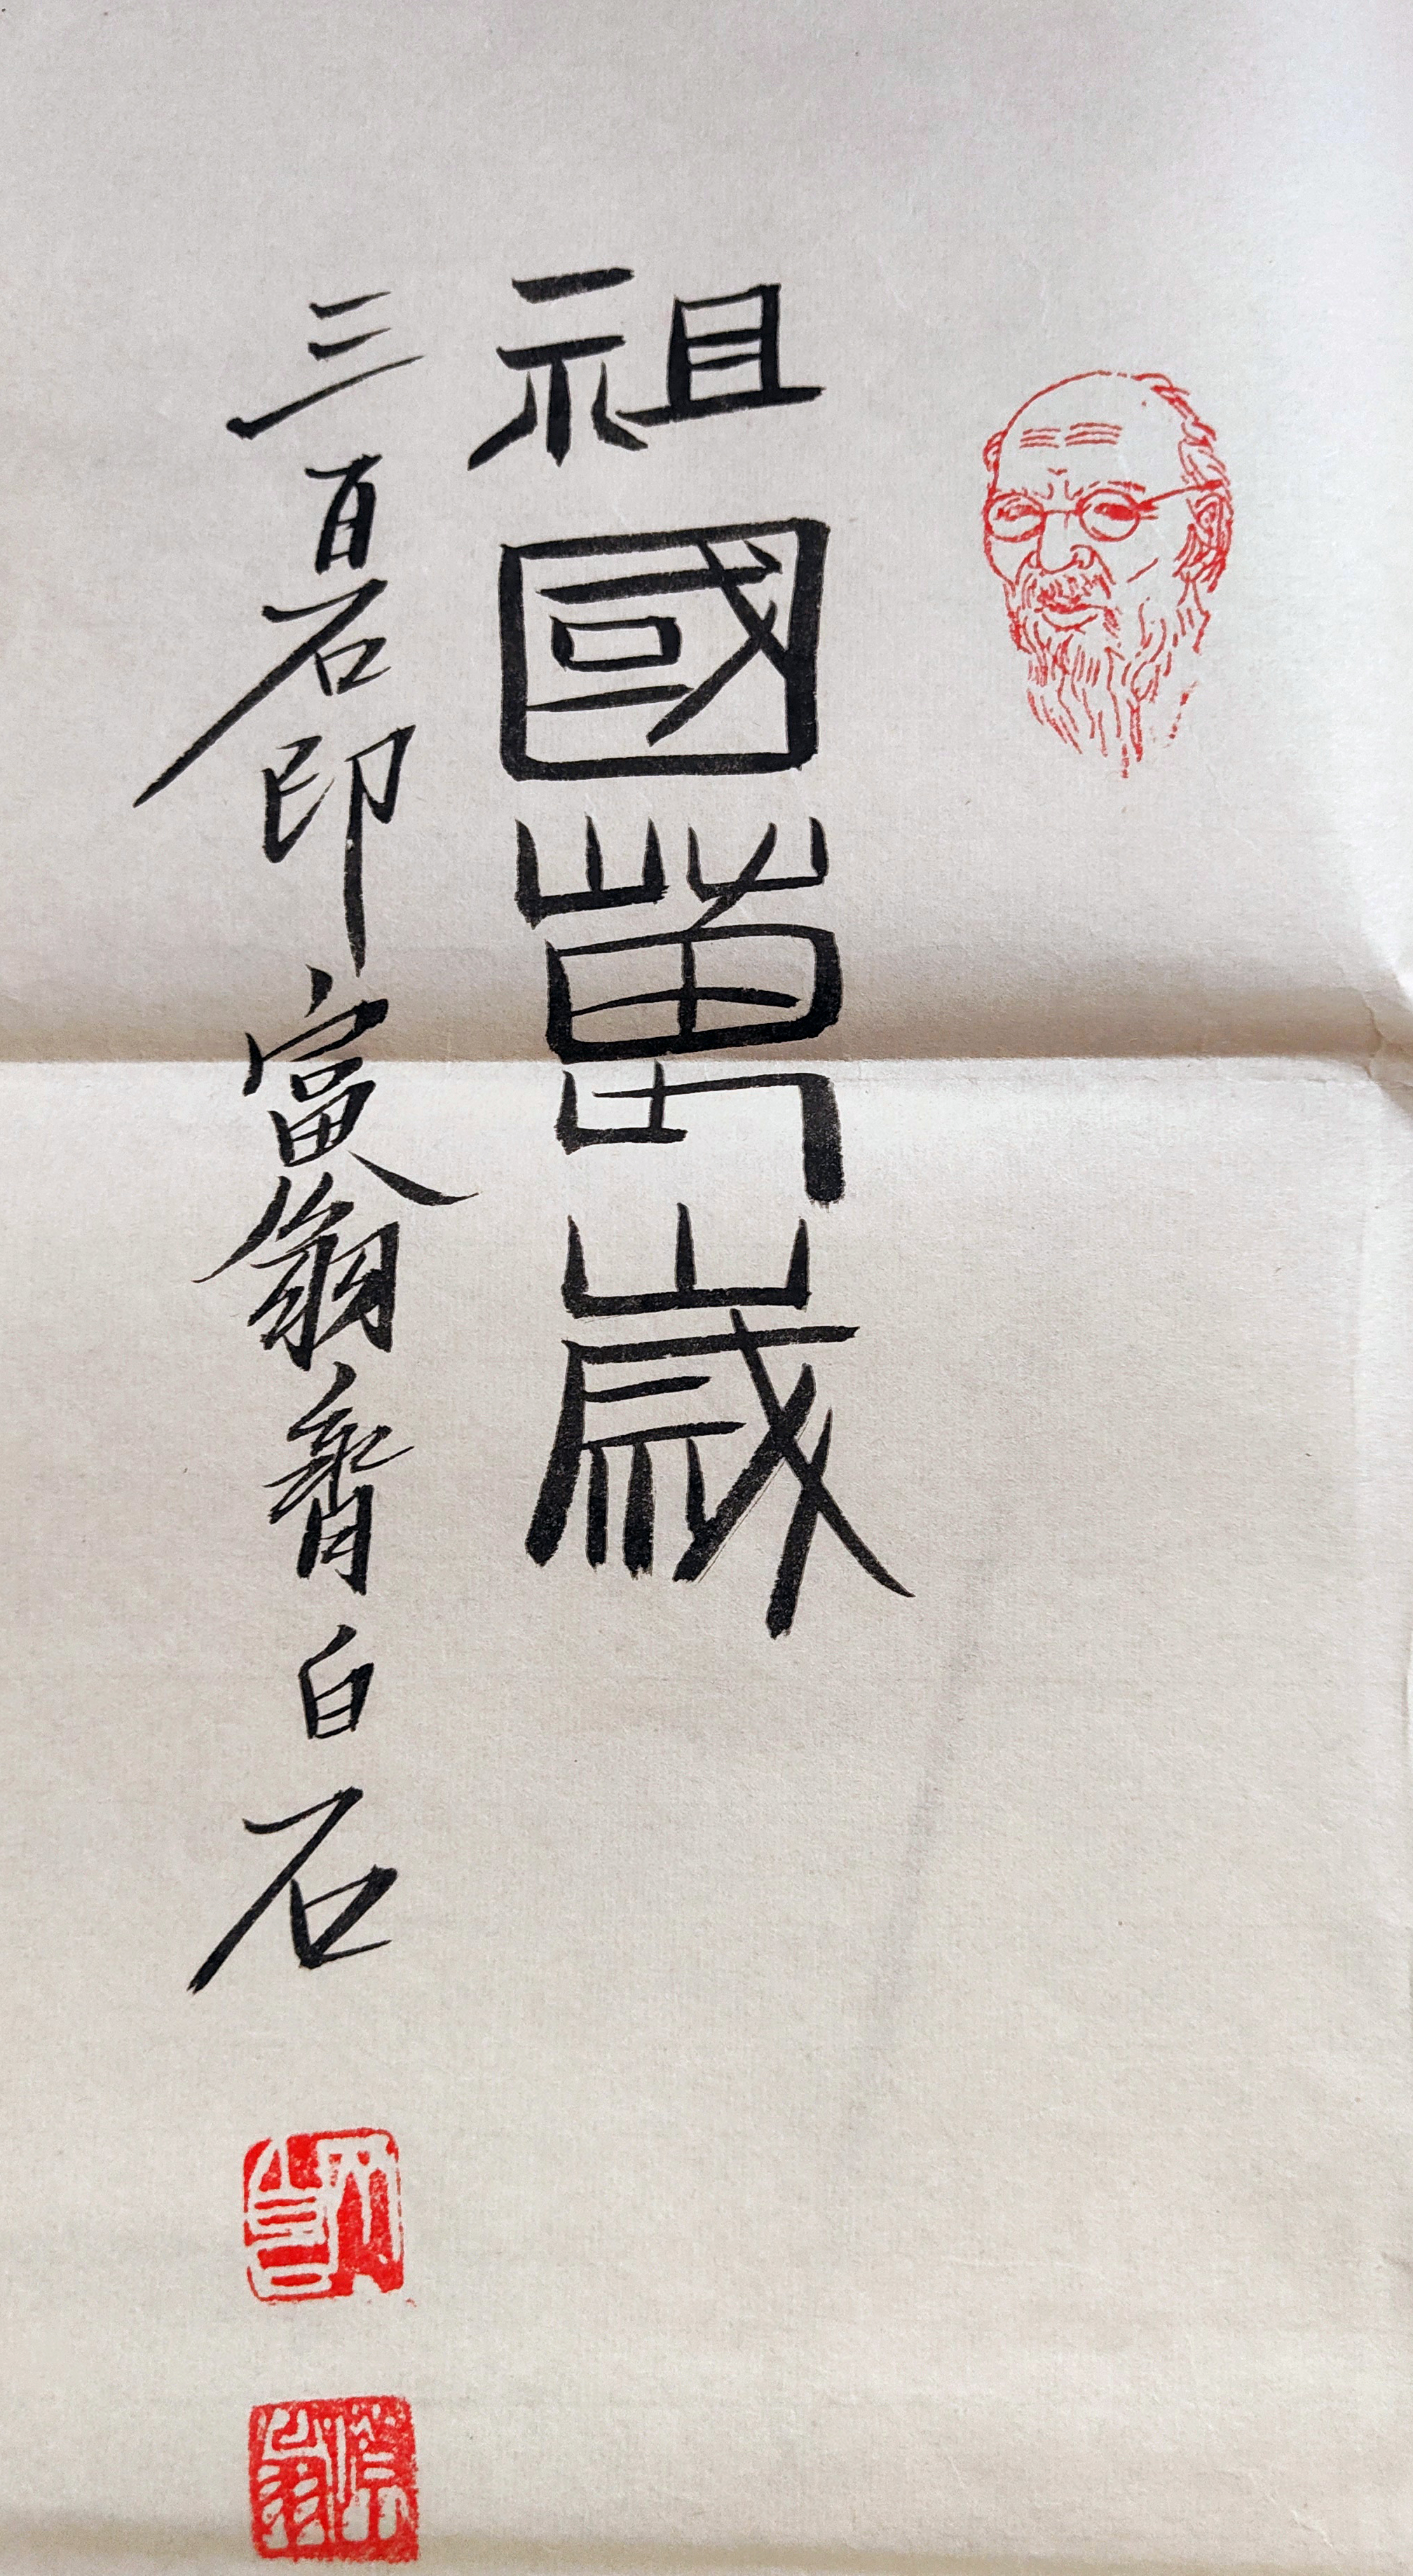 祖國萬歲
三百石印富翁齊白石